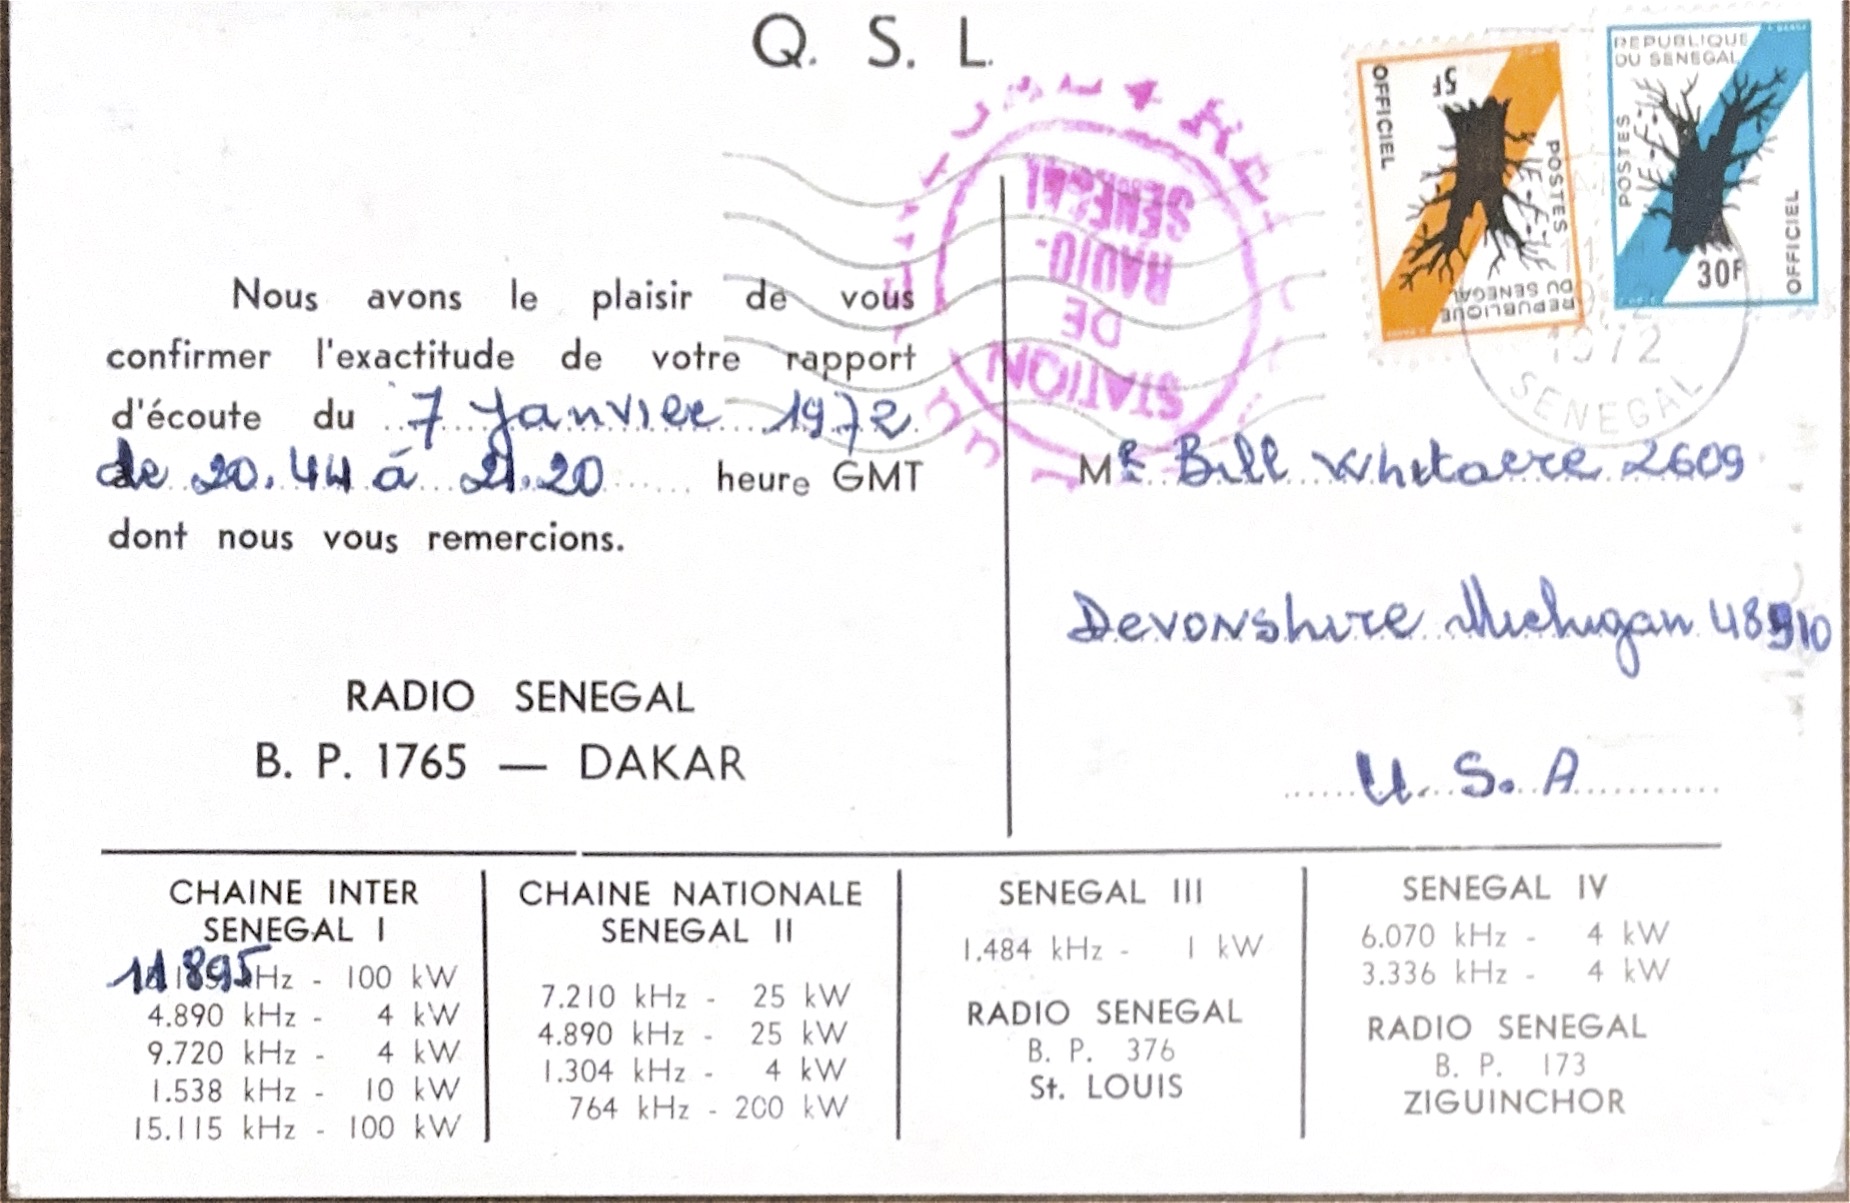 Q. S. L.
Nous avons le plaisir de vous
confirmer l'exactitude de votre rapport
d'écoute du 7 Janvier 1972
de 20.44 á 21.20 heure GMT
dont nous vous remercions.
RADIO SENEGAL
B. P. 1765 — DAKAR
STATION
DE
RADIO-
SENEGAL
5F
OFFICIEL
POSTES
REPUBLIQUE
DU SENEGAL
REPUBLIQUE
DU SENEGAL
POSTES
OFFICIEL
30F
1972
SENEGAL
Mr Bill Whitacre 2609
Devonshire Michigan 48910
U. S. A
CHAINE INTER
SENEGAL I
11895 kHz - 100 kW
4.890 kHz - 4 kW
9.720 kHz - 4 kW
1.538 kHz - 10 kW
15.115 kHz - 100 kW
CHAINE NATIONALE
SENEGAL II
7.210 kHz - 25 kW
4.890 kHz - 25 kW
1.304 kHz - 4 kW
764 kHz - 200 kW
SENEGAL III
1.484 kHz - 1 kW
RADIO SENEGAL
B. P. 376
St. LOUIS
SENEGAL IV
6.070 kHz - 4 kW
3.336 kHz - 4 kW
RADIO SENEGAL
B. P. 173
ZIGUINCHOR